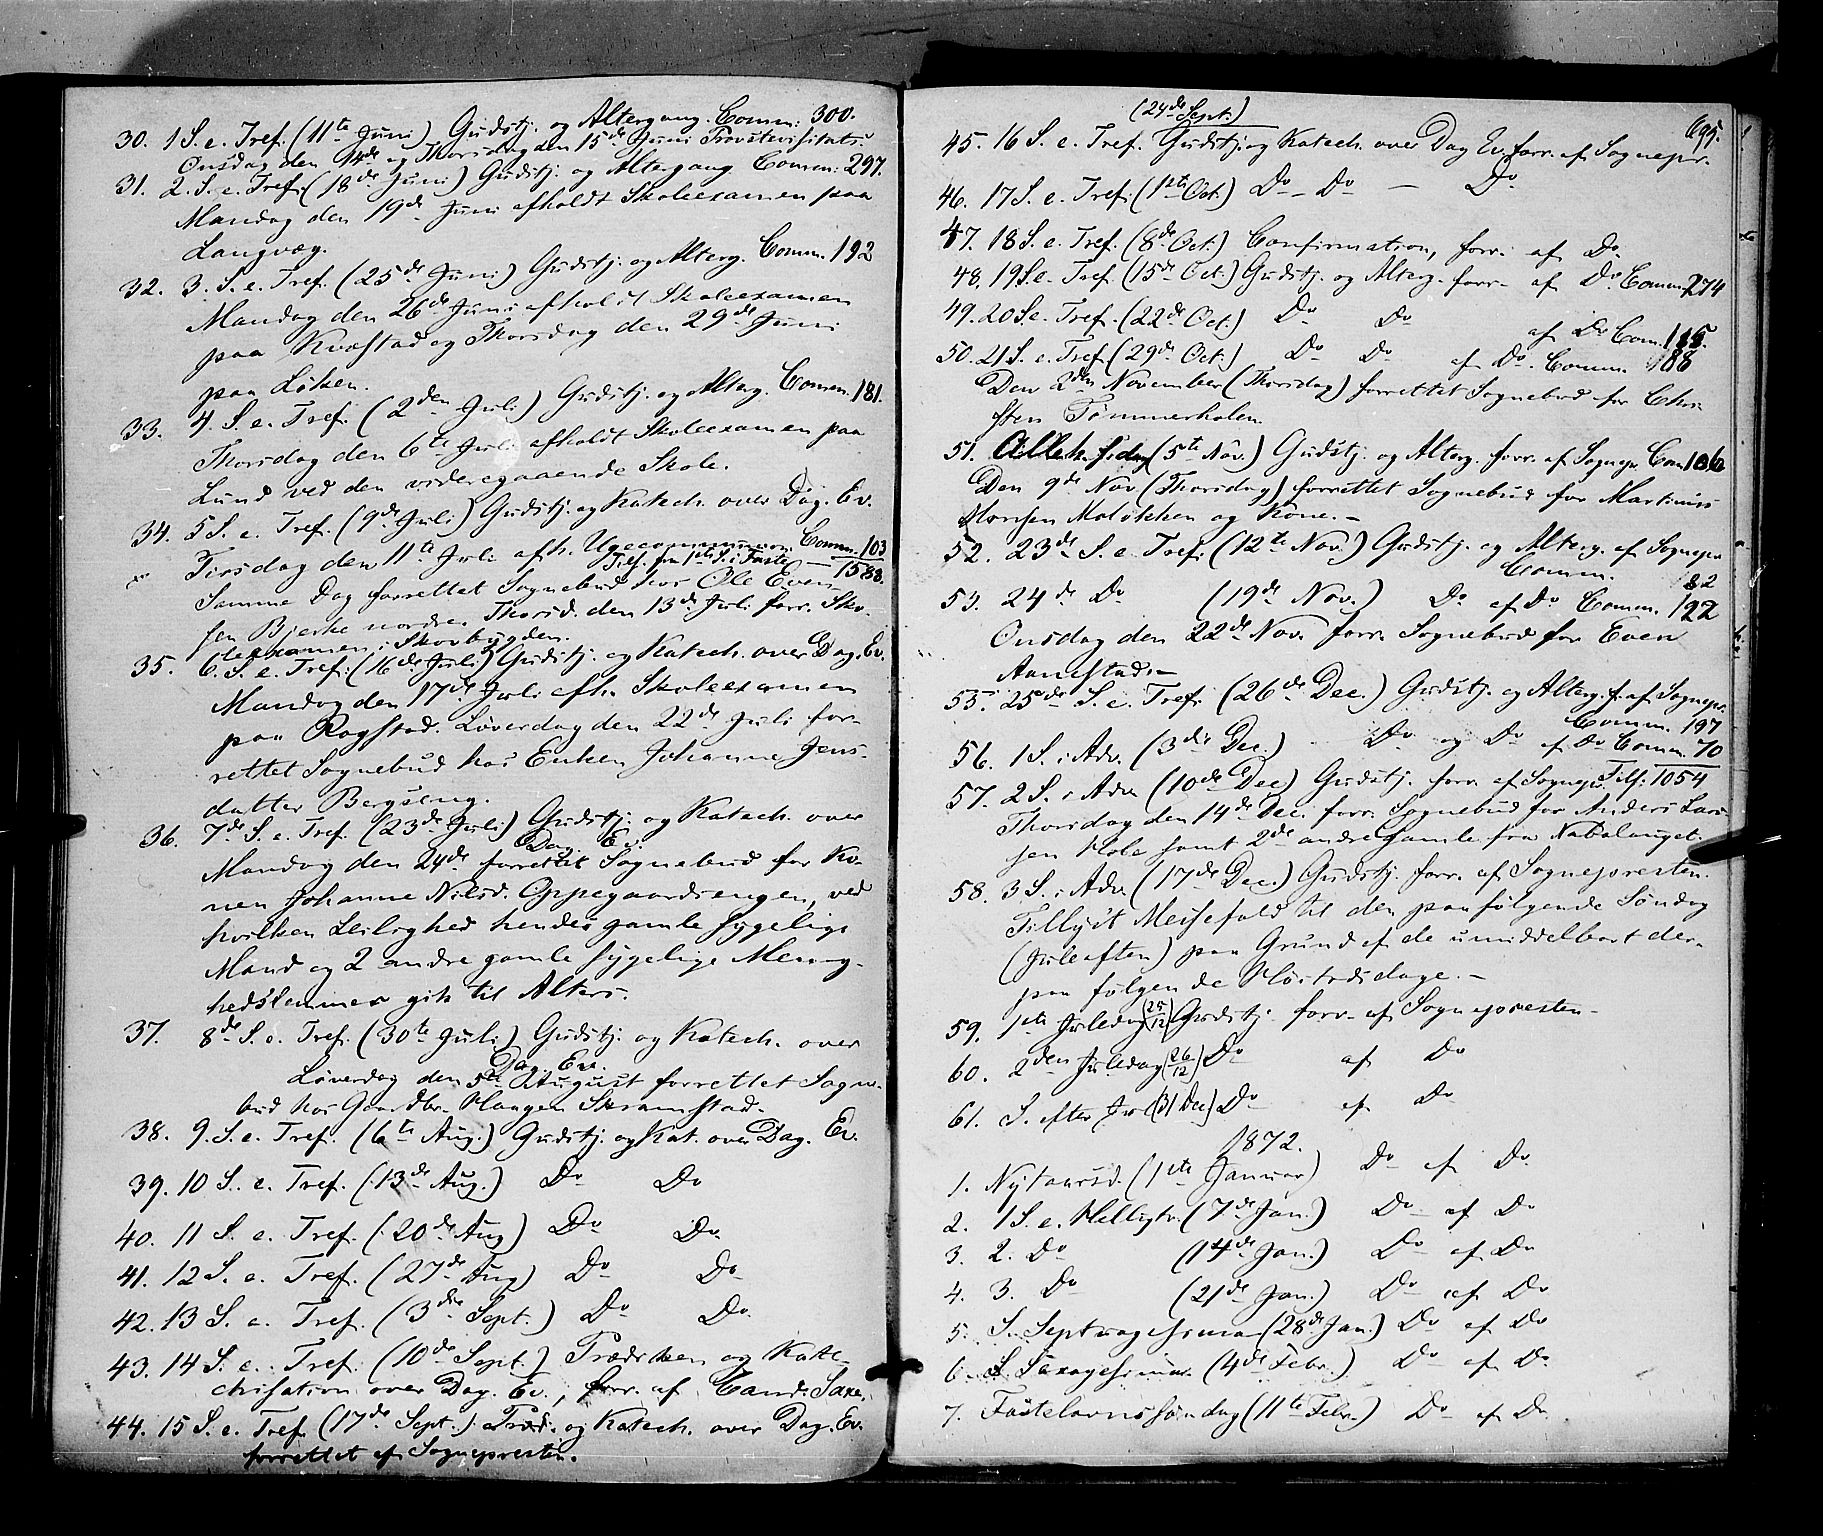 30. 1 S. e. Tref. (11te Juni) Gudstj. og Altergang. Comm: 300.
Onsdag den 14de og Thorsdag den 15de Juni Provstevisitats.
31. 2. S. e. Tref. (18de Juni) Gudstj. og Altergang Comm: 297.
Mandag den 19de Juni afholdt Skoleexamen paa
Langvæg.
32. 3. S. e. Tref. (25de Juni) Gudstj. og Alterg. Comm. 192
Mandag den 26de Juni afholdt Skoleexamen
paa Kvæstad og Thorsdag den 29de Juni
paa Løken.
33. 4. S. e. Tref. (2den Juli) Gudstj. og Alterg. Comm. 181.
Thorsdag den 6te Juli afholdt Skoleexamen paa
Lund ved den videregaaende Skole.
34. 5 S. e. Tref. (9de Juli) Gudstj. og Katech. over Dag. Ev.
Tirsdag den 11te Juli afh. Ugecommunion Comm. 103
Tils. fra 1ste S. i Faste — 1588.
Samme Dag forrettet Sognebud hos Ole Even-
sen Bjerke nordre. Thorsd. den 13de Juli forr. Sko-
leexamen i Skovbygden.
35. 6. S. e. Tref. (16de Juli) Gudstj. og Katech. over Dag. Ev.
Mandag den 17de Juli afh. Skoleexamen
paa Rogstad. Løverdag den 22de Juli for-
rettet Sognebud hos Enken Johanne Jens-
datter Bergseng.
36. 7de S. e. Tref. (23de Juli) Gudstj. og Katech. over
Dag. Ev.
Mandag den 24de forrettet Sognebud for Ko-
nen Johanne Nilsd. Oppegaardsengen, ved
hvilken Leilighed hendes gamle sygelige
Mand og 2 andre gamle sygelige Menig-
hedslemmer gik til Alters.
37. 8de S. e. Tref. (30te Juli) Gudstj. og Katech. over
Dag. Ev.
Løverdag den 5te August forrettet Sogne-
bud hos Gaardbr. Haagen Skramstad.
38. 9. S. e. Tref. (6te Aug.) Gudstj. og Kat. over Dag. Ev.
39. 10 S. e. Tref. (13de Aug.) Do Do
40. 11 S. e. Tref. (20de Aug) Do Do
41. 12 S. e. Tref. (27de Aug) Do Do
42. 13 S. e. Tref. (3die Sept.) Do Do.
43. 14 S. e. Tref. (10de Sept.) Prædiken og Kate-
chisation over Dag. Ev., forr. af Cand. Saxe.
44. 15 S. e. Tref. (17de Sept.) Præd. og Katech. over Dag. Ev.
forrettet af Sognepresten.
695.
(24de Sept.)
45. 16 S. e. Tref. Gudstj. og Katech. over Dag Ev. forr. af Sognepr.
46. 17 S. e. Tref. (1ste Oct.) Do — Do — Do
47. 18 S. e. Tref. (8de Oct.) Confirmation, forr. af Do.
48. 19 S. e. Tref. (15de Oct.) Gudstj. og Alterg. forr. af Do Comm. 274
49. 20 S. e. Tref. (22de Oct.) Do Do af Do Com. 115.
50. 21 S. e. Tref (29de Oct.) Do Do af Do. Comm. 188
Den 2den November (Thorsdag) forrettet Sognebud for Chri-
sten Tømmerholen
51. Alleh. sdag (5te Nov.) Gudstj. og Alterg. forr. af Sognepr. Com. 106
Den 9de Nov. (Thorsdag) forrettet Sognebud for Martinus
Hansen Moløkken og Kone. —
52. 23de S. e. Tref. (12te Nov.) Gudstj. og Alterg. af Sognepr.
Comm. 82
53. 24de Do (19de Nov.) Do af Do Comm. 122
Onsdag den 22de Nov. forr. Sognebud for Even
Aamestad. —
55. 25de S. e. Tref. (26de Dec.) Gudstj. og Alterg. f. af Sognepr.
Comm. 197
56. 1 S. i Adv. (3die Dec.) Do og Do af Do Comm. 70
57. 2 S. i Adv. (10de Dec) Gudstj. forr. af Sognepr. Tils: 1054
Thorsdag den 14de Dec. forr. Sognebud for Anders Lar-
sen Hole samt 2de andre gamle fra Nabolauget.
58. 3 S. i Adv. (17de Dec.) Gudstj. forr. af Sognepresten.
Tillyst Messefald til den paafølgende Søndag
(Juleaften) paa Grund af de umiddelbart der-
paa følgende Høitidsdage. —
59. 1ste Juledag (25/12) Gudstj. forr. af Sognepresten —
60. 2den Juledag (26/12) Do af Do
61. S. efter Jul (31 Dec) Do af Do
1872.
1. Nytaarsd. (1ste Januar) Do af Do
2. 1 S. e. Helligtr. (7de Jan.) Do af Do
3. 2. Do (14de Jan.) Do af Do
4. 3. Do (21de Jan.) Do af Do
5. S. Septuagesima (28de Jan.) Do af Do
6. S. Sexagesima (4de Febr.) Do af Do.
7. Fastelavnssøndag (11te Febr.) Do af Do